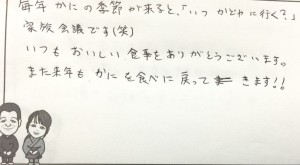 毎年 かにの季節が来ると、「いつ かどやに行く?」
家族会議です(笑)
いつも おいしい 食事を ありがとうございます。
また来年も かにを食べに 戻って きます!!